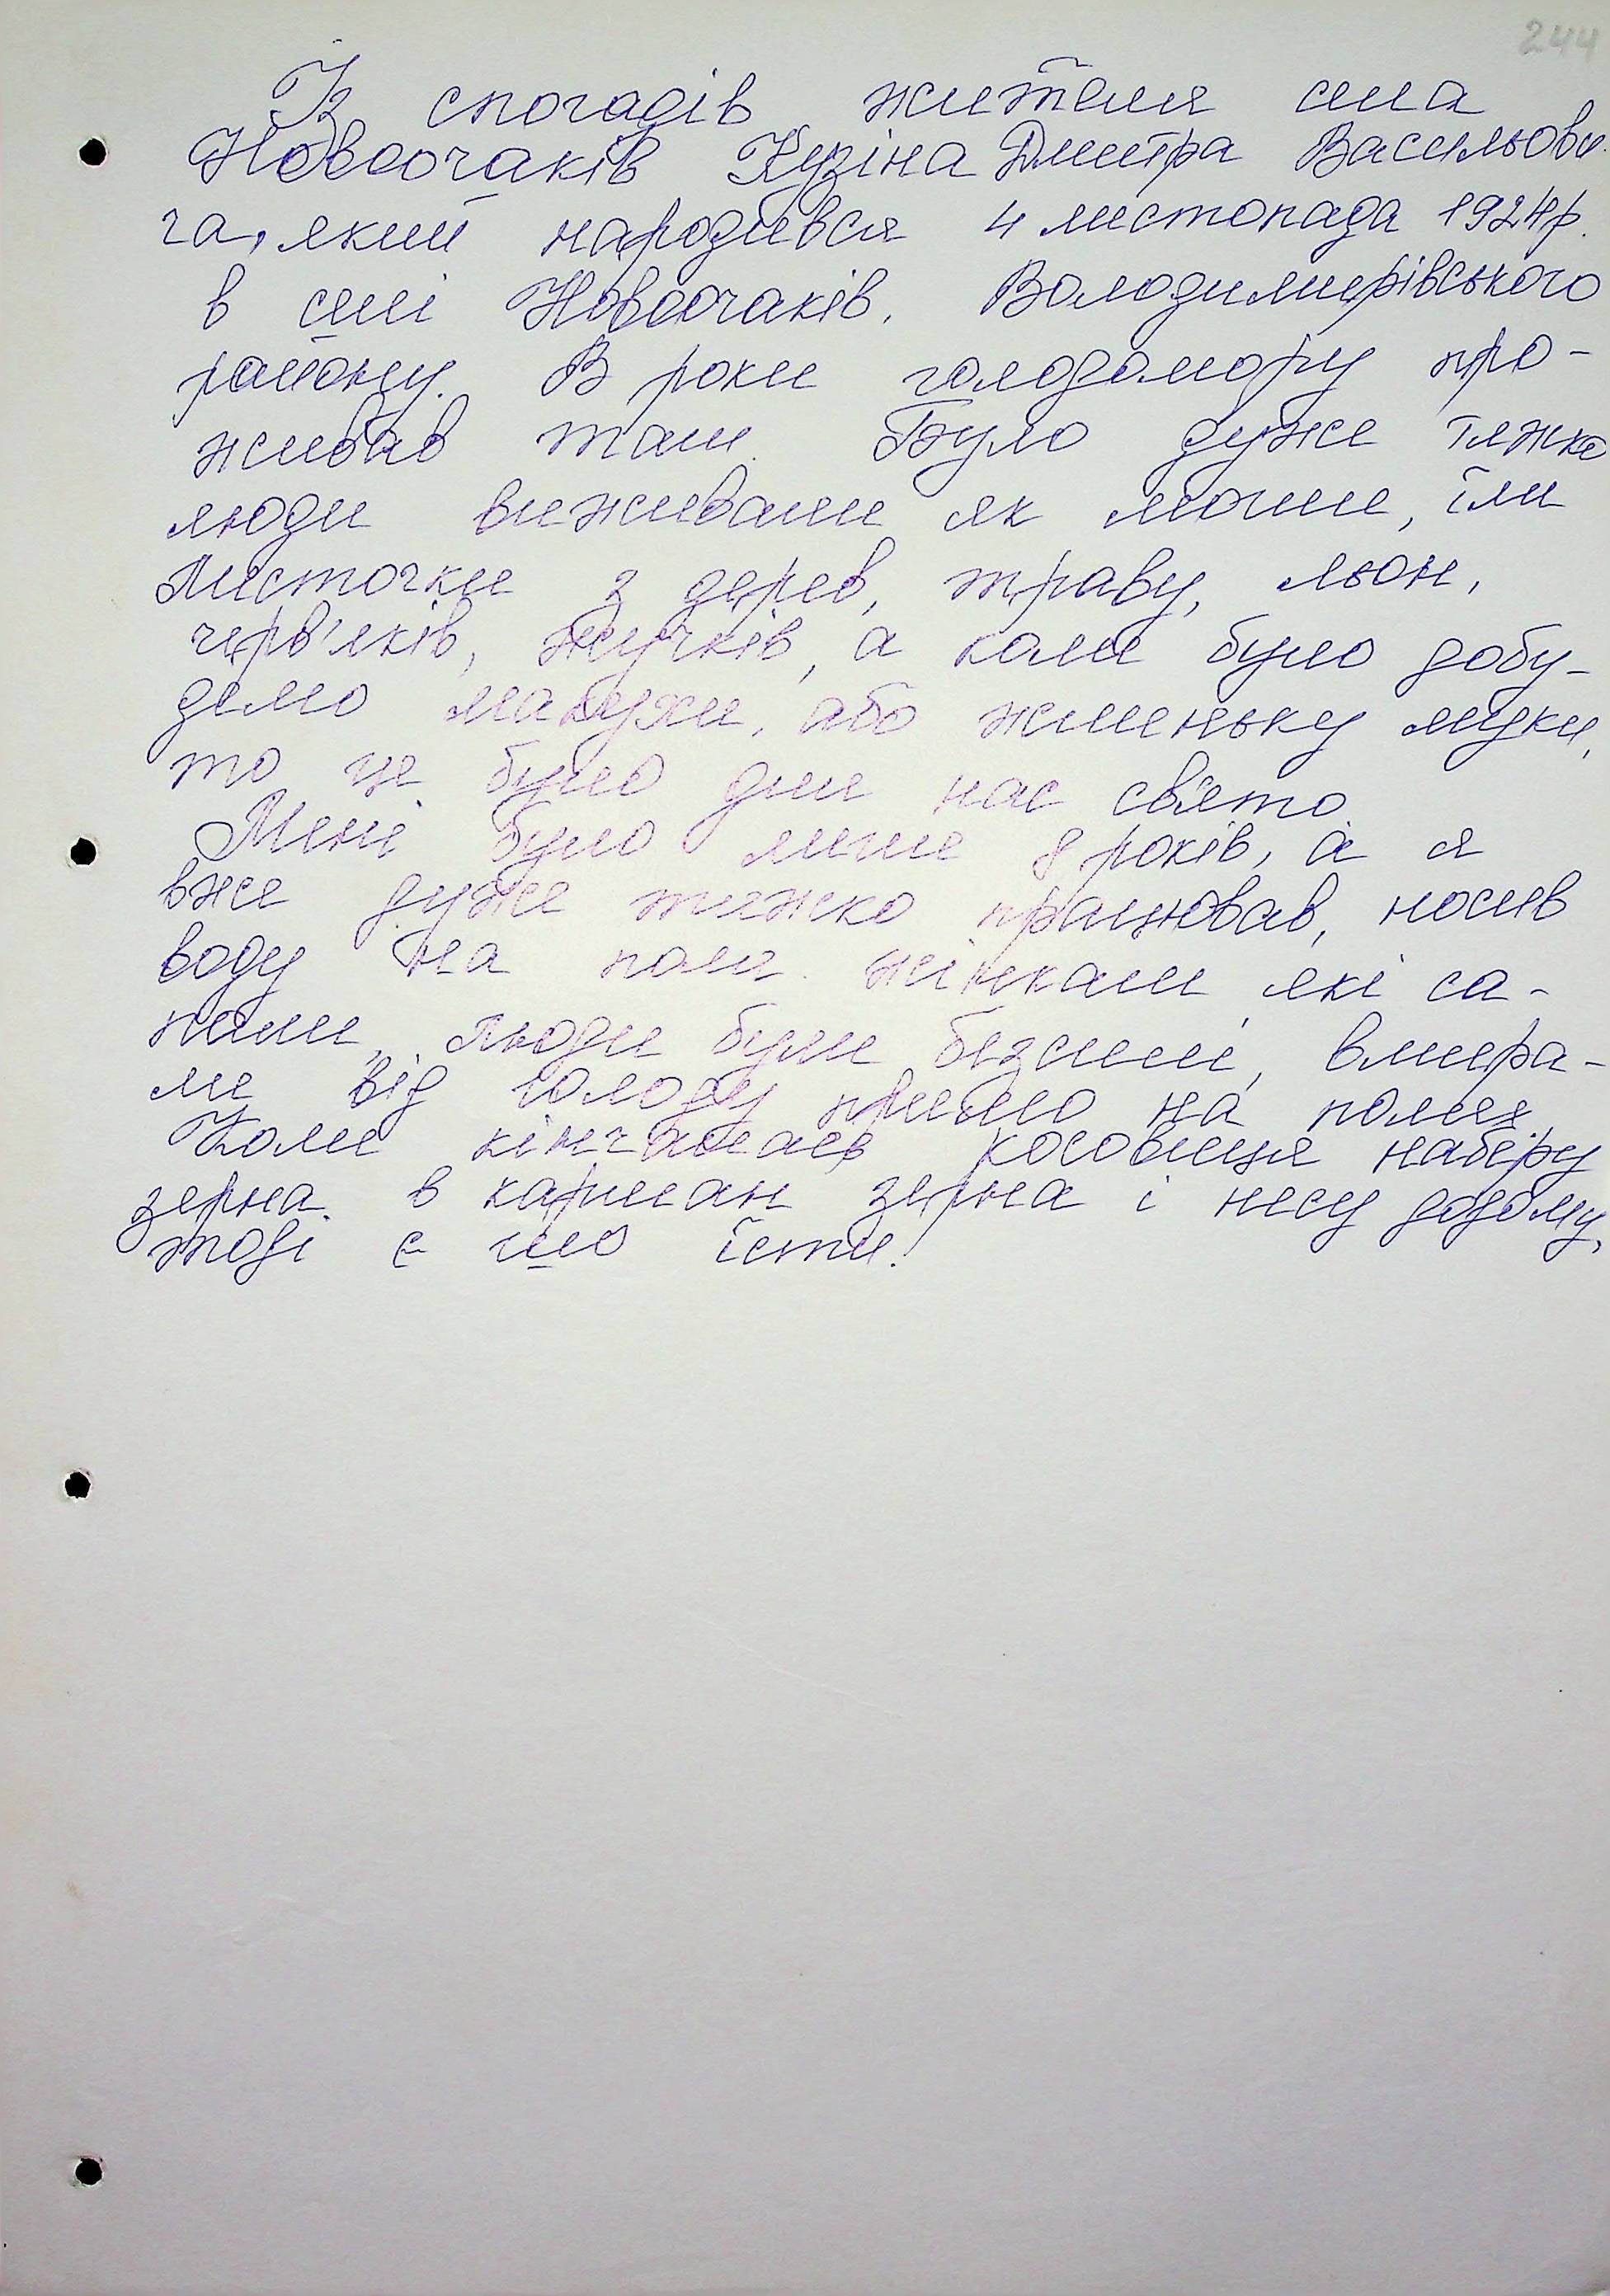 244
Із спогадів жителя села
Новоочаків Кузіна Дмитра Васильови-
ча, який народився 4 листопада 1924р.
в селі Новоочаків, Володимирівського
району. В роки голодомору про-
живав там. Було дуже тяжко
люди виживали як могли, їли
листочки з дерев, траву, льон,
черв'яків, жучків, а коли було добу-
демо макухи, або жменьку муки,
то це було для нас свято.
Мені було лише 8 років, а я
вже дуже тяжко працював, носив
воду на поля жінкам, які са-
пали, люди були безсилі, вмира-
ли від голоду прямо на полях.
Коли кінчалась косовиця наберу
зерна в карман зерна і несу додому,
тоді є що їсти.